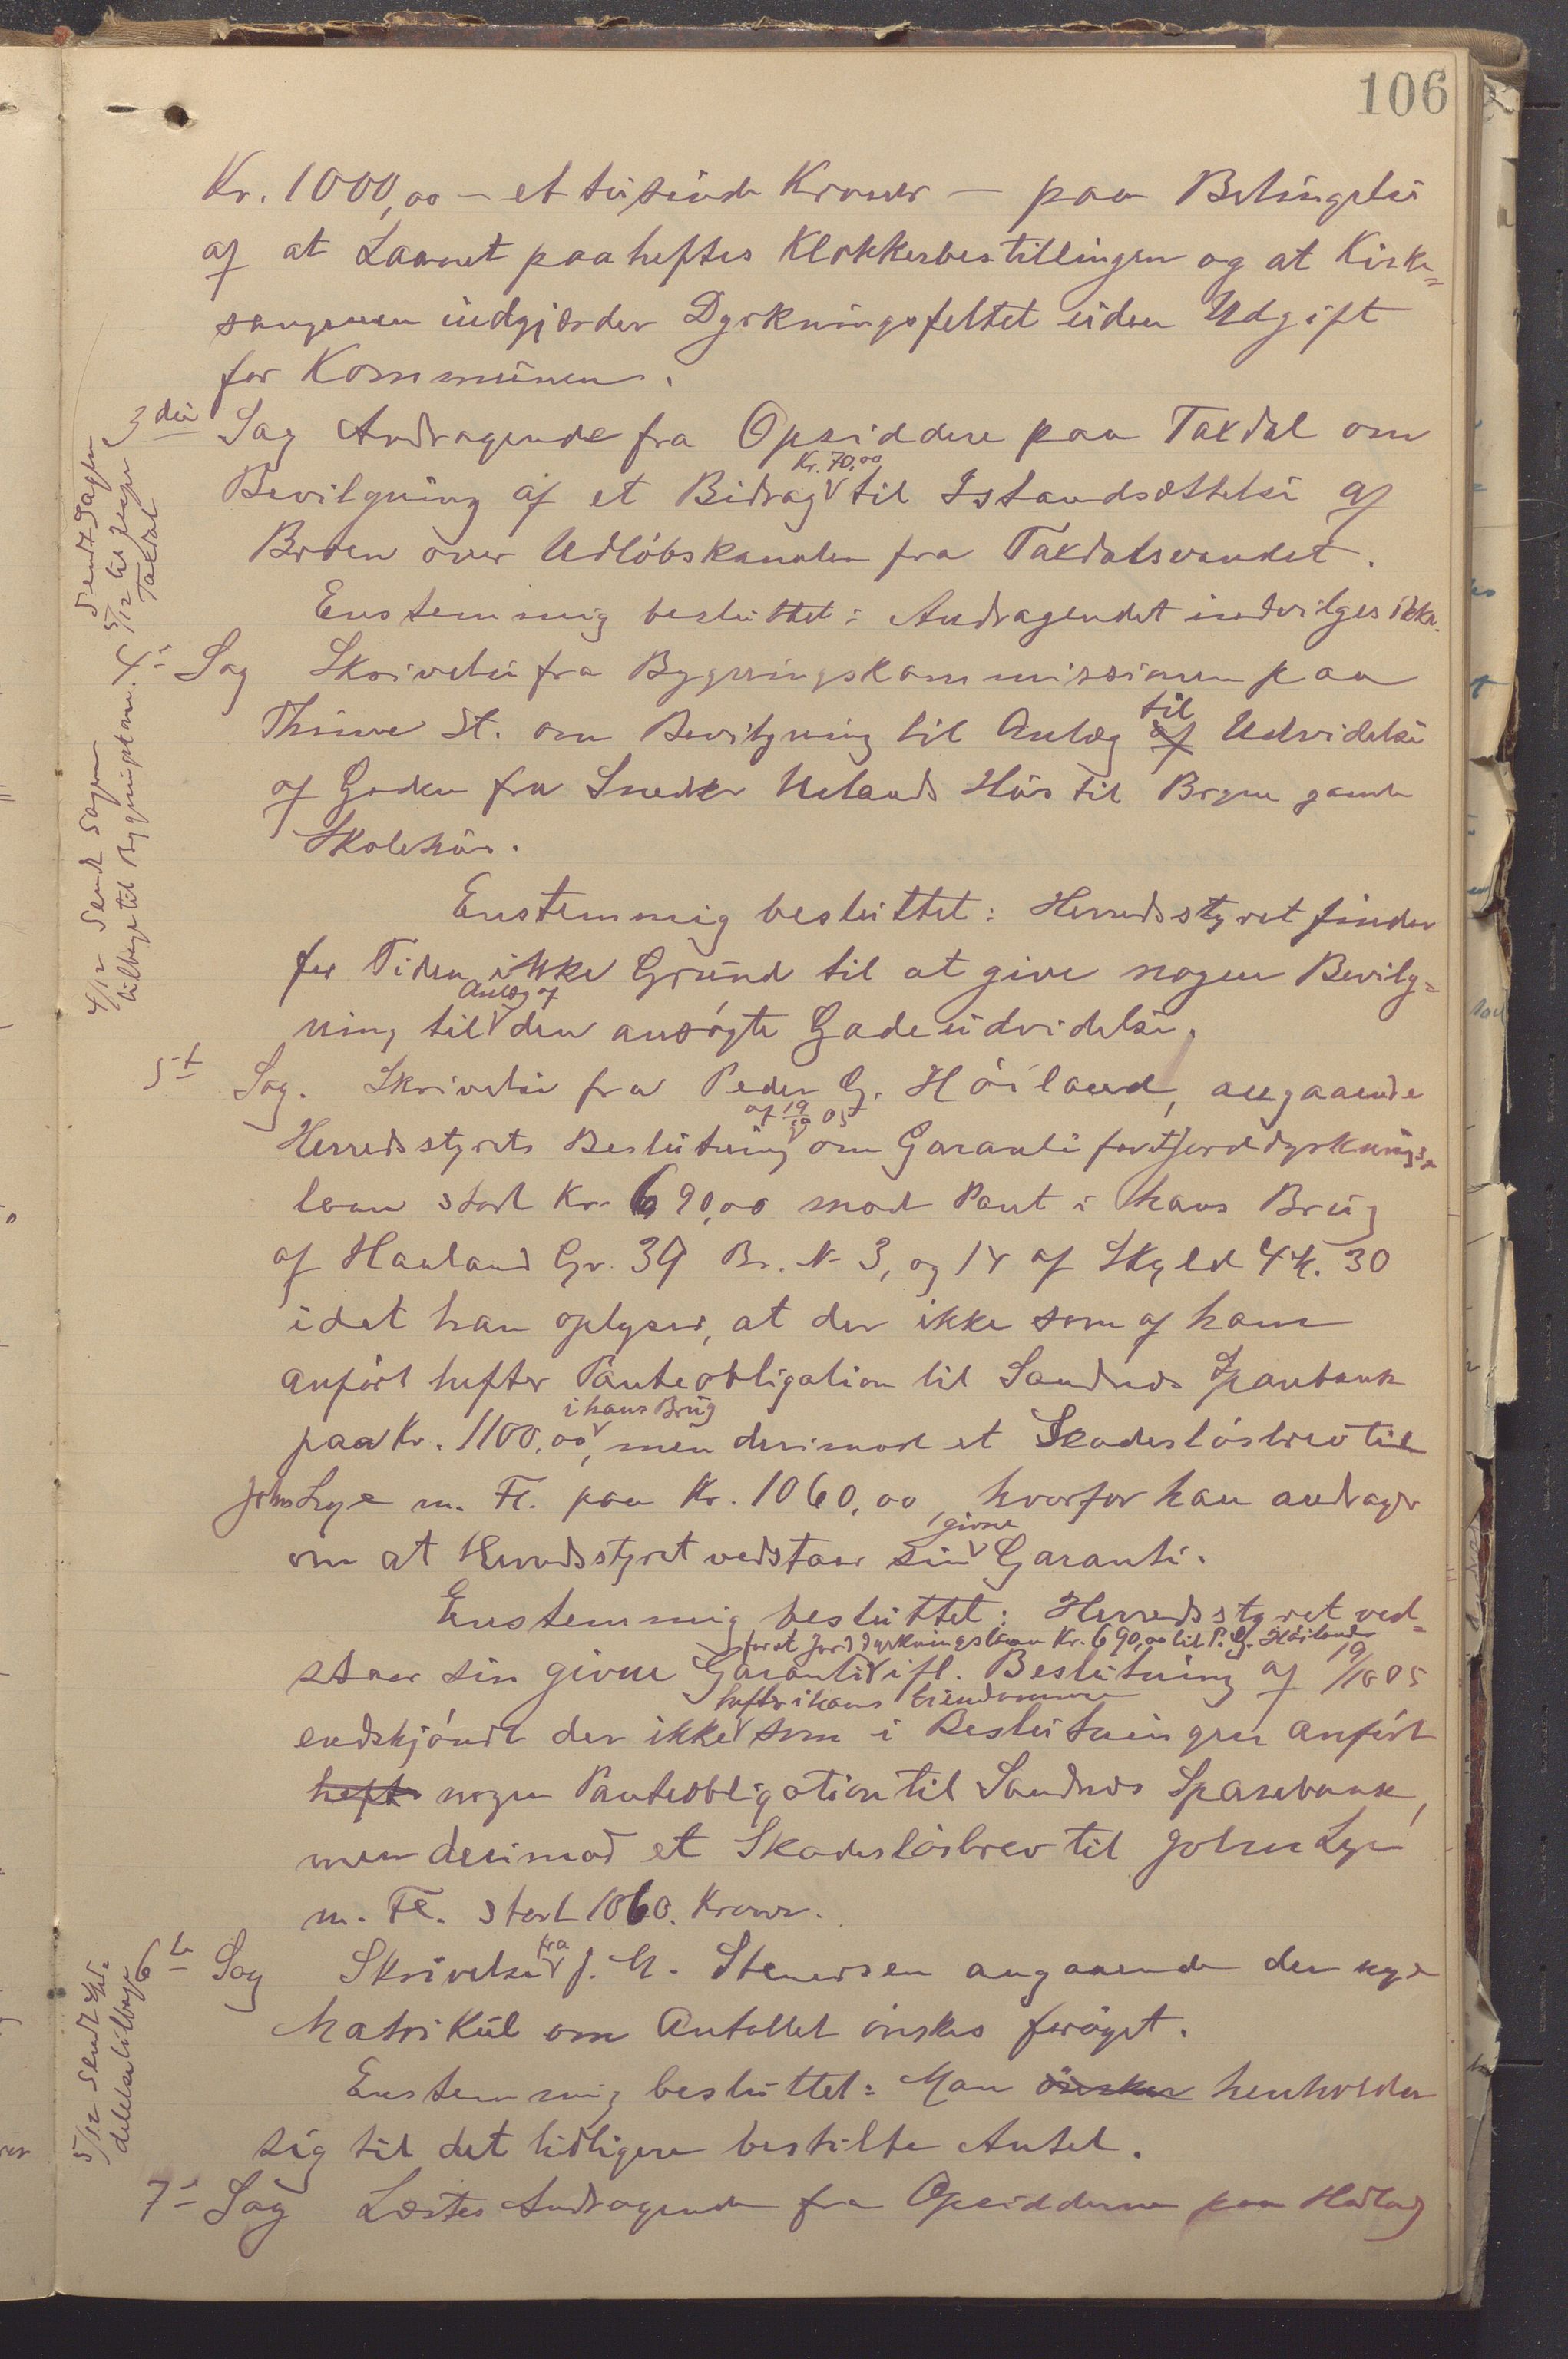 106
Kr. 1000,00 – et tusinde Kroner – paa Betingelse
af at Laanet paaheftes Klokkerbestillingen og at Kirke=
sangeren indgjærder Dyrkningsfeltet uden Udgift
for Kommunen.
3die Sag Andragende fra Opsiddere paa Taxdal om
Kr. 70,00
Bevilgning af et Bidrag til Istandsættelse af
Broen over Udløbskanalen fra Taxdalsvandet.
Enstemmig besluttet: Andragendet indvilges ikke.
Sendt Sagen
5/12 til
Taxdal
4de Sag Skrivelse fra Bygningskommissionen paa
Thime St. om Bevilgning til Anlæg af til Udvidelse
af Gaden fra Snedker Uelands Hus til Bryne gamle
Skolehus.
4/12 Sendt Sagen
tilbage til Bygningskom.
Enstemmig besluttet: Herredsstyret finder
for Tiden ikke Grund til at give nogen Bevilg=
Anlæg af
ning til den ansøgte Gadeudvidelse.
5te Sag. Skrivelse fra Peder G. Höiland, angaaende
af 19/10 05
Herredsstyrets Beslutning om Garanti for et Jorddyrknings=
laan stort Kr. 690,00 mod Pant i hans Brug
af Haaland Gr. 39 Br. N. 3, og 14 af Skyld 4 30
idet han oplyser, at der ikke som af ham
anført hefter Panteobligation til Sandnes Sparebank
i hans Brug
paa Kr. 1100,00, men derimod et Skadesløsbrev til
John Lye m. Fl. paa Kr. 1060,00, hvorfor han andrager
givne
om at Herredsstyret vedstaar sin Garanti.
Enstemmig besluttet: Herredsstyret ved=
for et Jorddyrkningslaan Kr. 690,00 til P. G. Höiland
staar sin givne Garanti ifl. Beslutning af 19/10 05
hefter i hans Eiendomme
endskjøndt der ikke som i Beslutningen anført
hefter nogen Panteobligation til Sandnes Sparebank,
men derimod et Skadesløsbrev til John Lye
m. Fl. stort 1060. Kroner.
6te Sag Skrivelse fra J. M. Stenersen angaaende den nye
Matrikul om Antallet ønskes forøget.
5/12 Sendt
tilbage
Enstemmig besluttet: Man ønsker henholder
sig til det tidligere bestilte Antal.
7de Sag Læstes Andragende fra Opsidderne paa